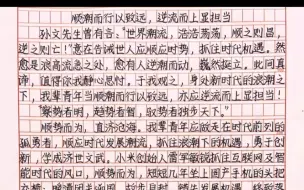 顺潮而行以致远，逆流而上显担当
孙文先生曾有言："世界潮流，浩浩荡荡，顺之则昌，
逆之则亡！"意在告诫世人应顺应时势，抓住时代机遇，然
愈是浪高流急之处，愈有人逆潮而动，巍然挺立，此间真
谛，值得你我静心思忖，于我观之，身处新时代的浪潮之
下，我辈青年当顺潮而行以致远，亦应逆流而上显担当！
"察势者明，趋势者智，驭势者独步天下。"
顺势而为，直济沧海。我辈青年应做走在时代前列的
孤勇者，顺应时代发展潮流，抓住浪潮下的机遇，勇于创
新，学成济世文武。小米创始人雷军敏锐抓住互联网及智
能时代的风口，顺势而为，短短几年坐上国产手机的头把